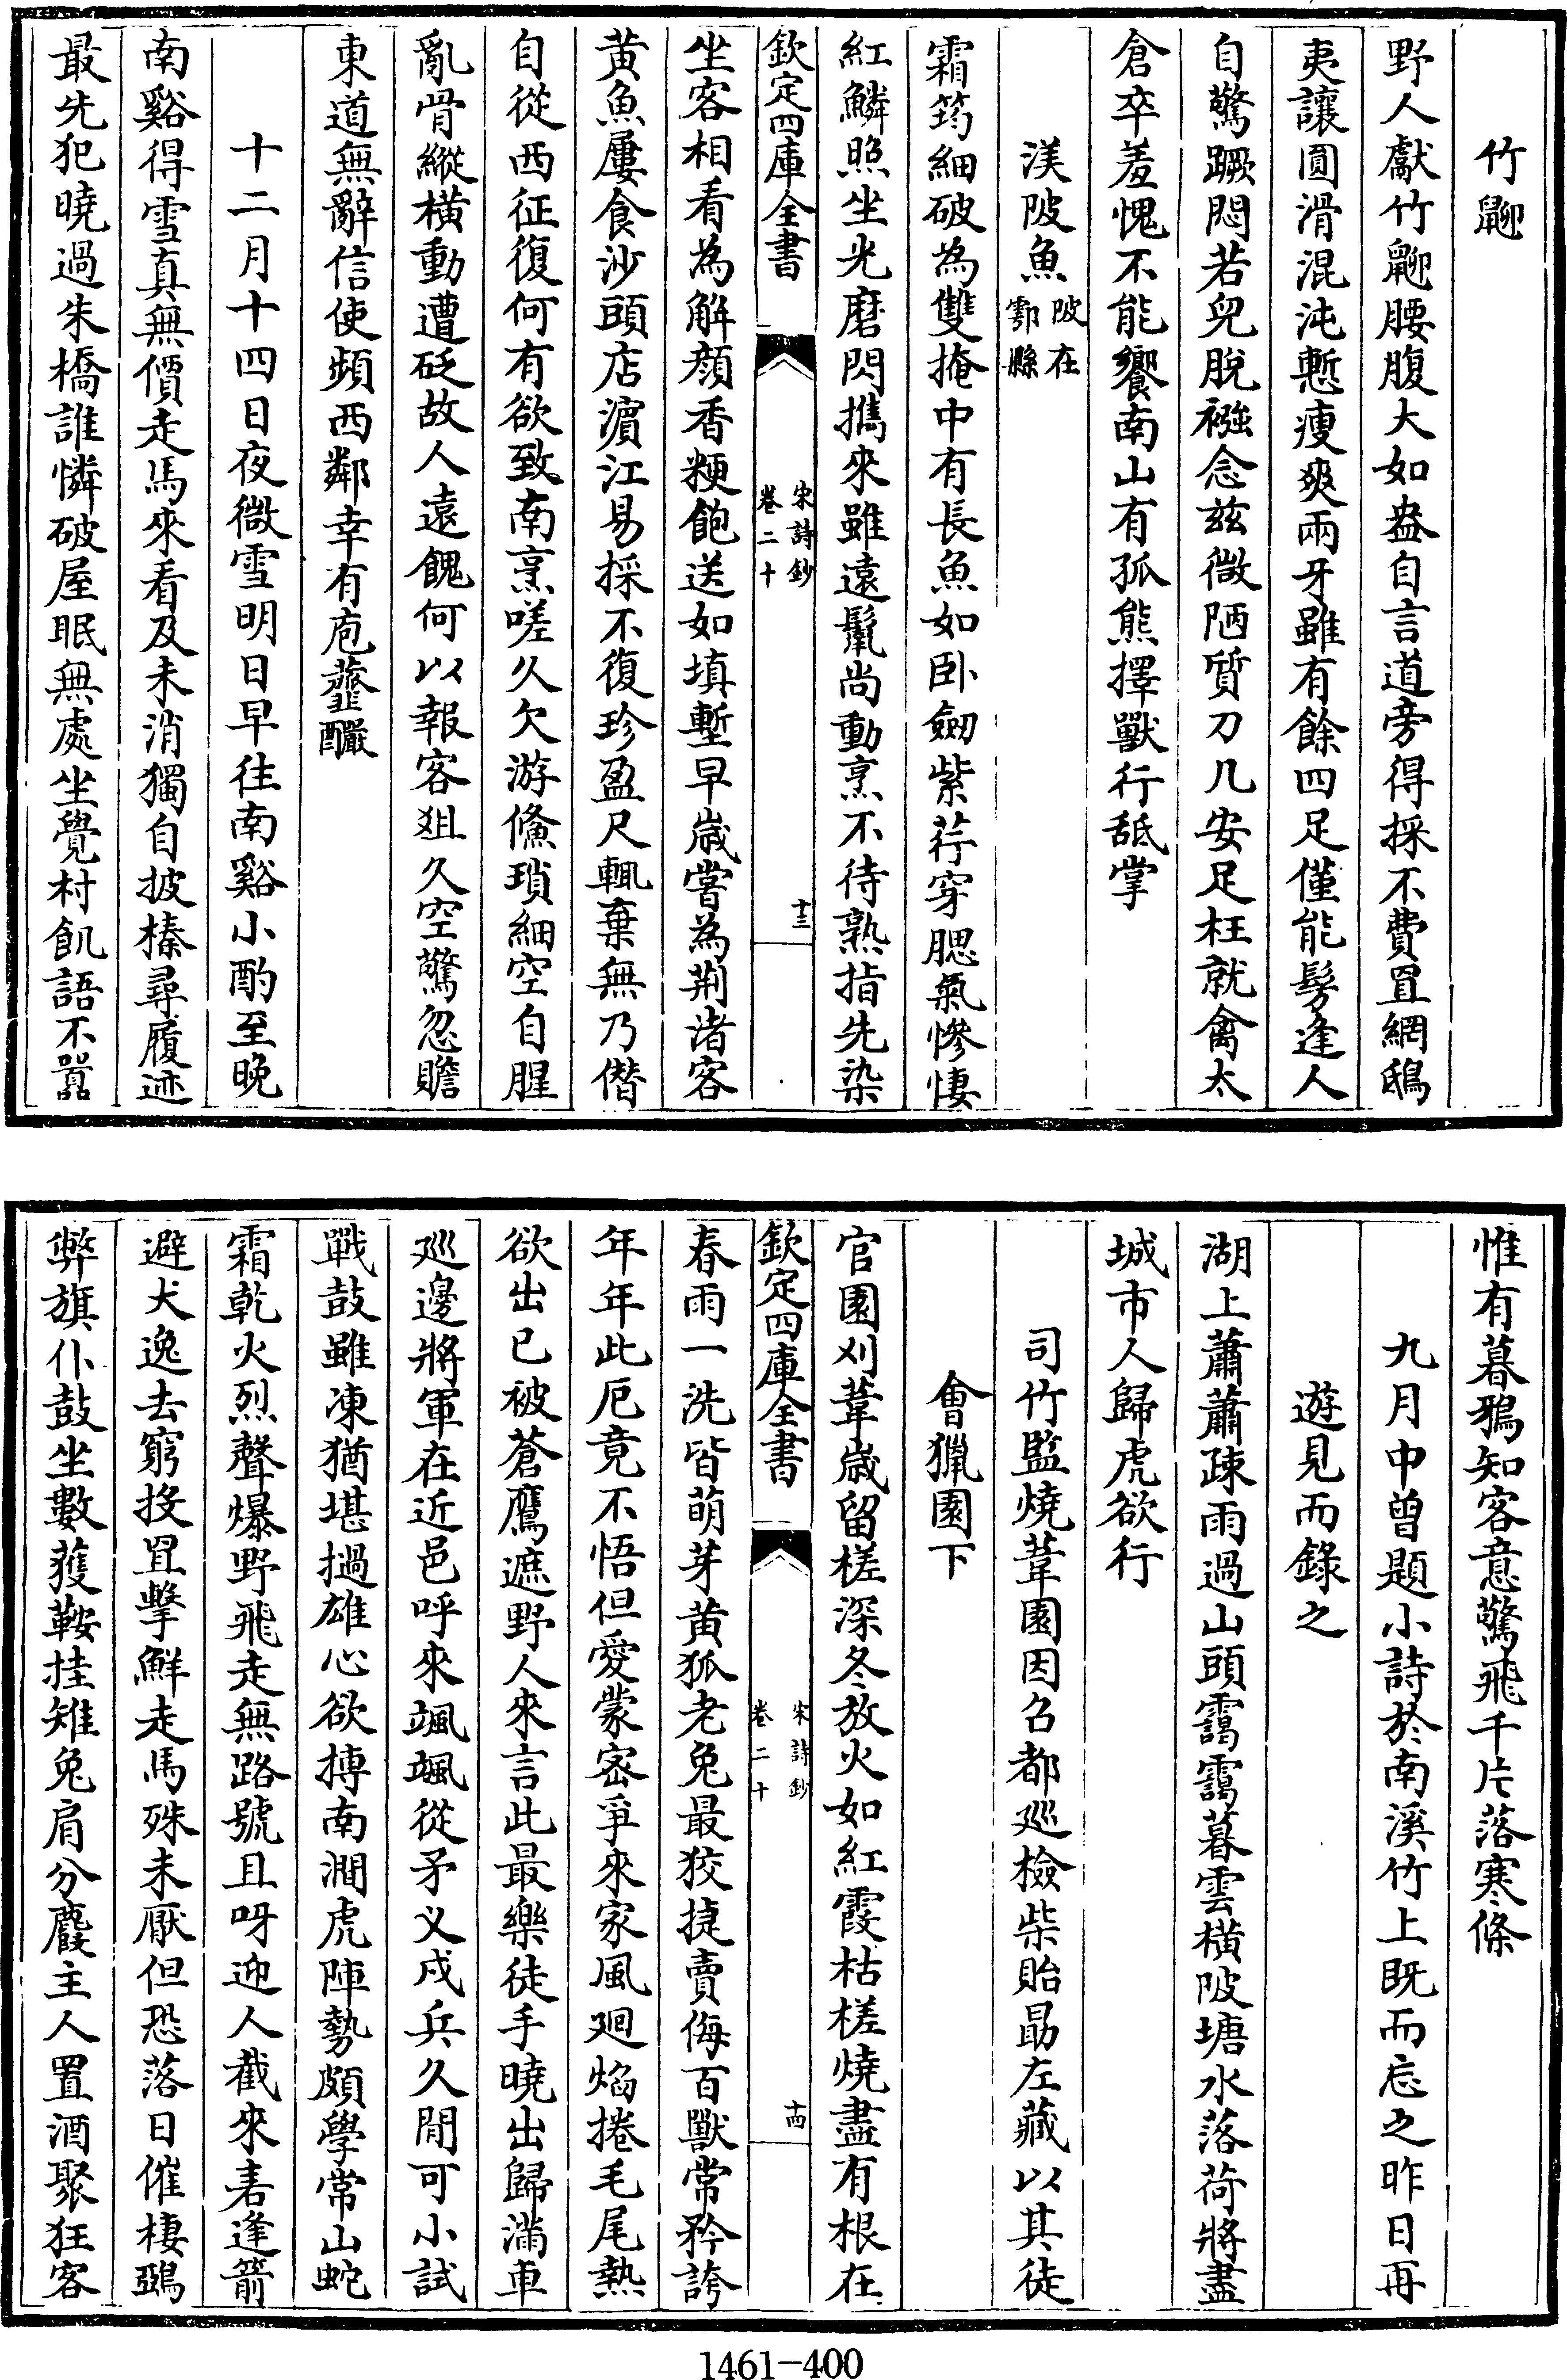 竹䶉
野人獻竹䶉腰腹大如盎自言道旁得採不費罝網鴟
夷讓圓滑混沌慙瘦爽兩牙雖有餘四足僅能髣逢人
自驚蹶悶若兒脫襁念兹微陋質刀几安足枉就禽太
倉卒羞愧不能饗南山有孤熊擇獸行舐掌
渼陂魚陂在鄠縣
霜筠細破為雙掩中有長魚如卧劒紫荇穿腮氣慘悽
紅鱗照坐光磨閃攜來雖遠鬛尚動烹不待熟指先染
欽定四庫全書 宋詩鈔 卷二十 十三
坐客相看為解顔香粳飽送如填塹早嵗嘗為荆渚客
黄魚屢食沙頭店濵江易採不復珍盈尺輒棄無乃僭
自從西征復何有欲致南烹嗟久欠游鯈瑣細空自腥
亂骨縱横動遭砭故人遠餽何以報客俎久空驚忽贍
東道無辭信使頻西鄰幸有庖虀釅
十二月十四日夜微雪明日早往南谿小酌至晚
南谿得雪真無價走馬來看及未消獨自披榛尋履迹
最先犯曉過朱橋誰憐破屋眠無處坐覺村飢語不囂
惟有暮鴉知客意驚飛千片落寒條
九月中曽題小詩於南溪竹上既而忘之昨日再
遊見而錄之
湖上蕭蕭疎雨過山頭靄靄暮雲横陂塘水落荷將盡
城市人歸虎欲行
司竹監燒葦園因召都廵檢柴貽勗左藏以其徒
會獵園下
官園刈葦嵗留槎深冬放火如紅霞枯槎燒盡有根在
欽定四庫全書 宋詩鈔 卷二十 十四
春雨一洗皆萌芽黄狐老兔最狡捷賣侮百獸常矜誇
年年此厄竟不悟但愛蒙密爭來家風迴焰捲毛尾熱
欲出已被蒼鷹遮野人來言此最樂徒手曉出歸滿車
廵邊將軍在近邑呼來颯颯從矛义戍兵久閒可小試
戰鼓雖凍猶堪撾雄心欲搏南澗虎陣勢頗學常山蛇
霜乾火烈聲爆野飛走無路號且呀迎人截來砉逢箭
避犬逸去窮投罝擊鮮走馬殊未厭但恐落日催棲鵶
弊旗仆鼓坐數獲鞍挂雉兔肩分麚主人置酒聚狂客
1461-400